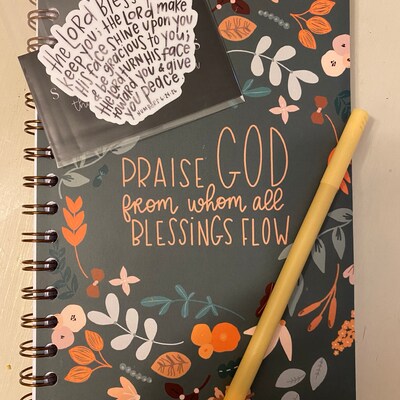 The LORD Bless
& keep you; the LORD make
His face shine upon you
& be gracious to you;
the LORD turn His face
toward you & give
you peace.
NUMBERS 6:24-26
PRAISE GOD
from whom all
BLESSINGS FLOW